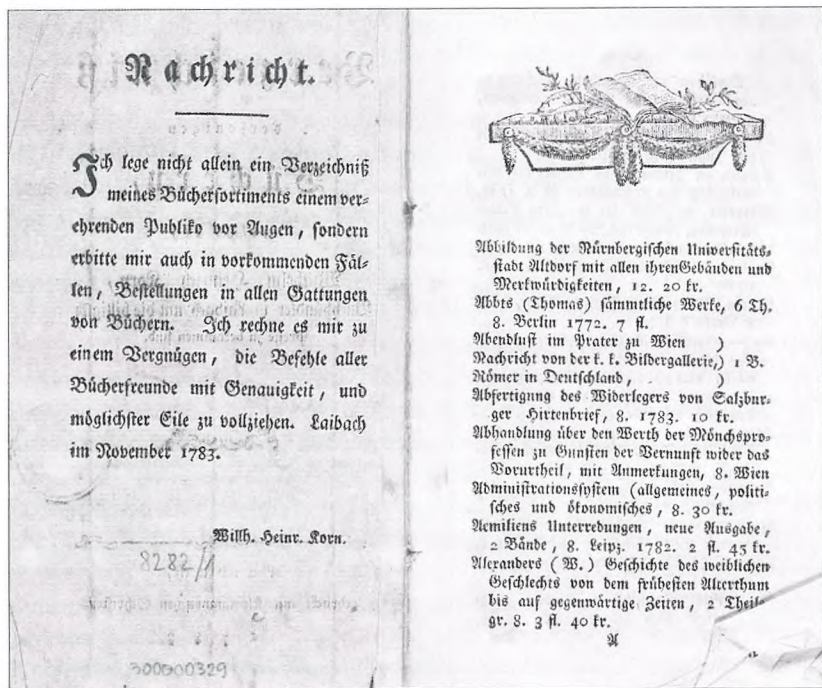 Nachricht.
Ich lege nicht allein ein Verzeichniß
meines Büchersortiments einem ver-
ehrenden Publiko vor Augen, sondern
erbitte mir auch in vorkommenden Fäl-
len, Bestellungen in allen Gattungen
von Büchern. Ich rechne es mir zu
einem Vergnügen, die Befehle aller
Bücherfreunde mit Genauigkeit, und
möglichster Eile zu vollziehen. Laibach
im November 1783.
Willh. Heinr. Korn.
8282/1
300000329
Abbildung der Nürnbergischen Universitäts-
stadt Altdorf mit allen ihren Gebäuden und
Merkwürdigkeiten, 12. 20 kr.
Abbts (Thomas) sämmtliche Werke, 6 Th.
8. Berlin 1772. 7 fl.
Abendlust im Prater zu Wien )
Nachricht von der k. k. Bildergallerie,) 1 B.
Römer in Deutschland, )
Abfertigung des Widerlegers von Salzbur-
ger Hirtenbrief, 8. 1783. 10 kr.
Abhandlung über den Werth der Mönchspro-
fessen zu Gunsten der Vernunft wider das
Vorurtheil, mit Anmerkungen, 8. Wien
Administrationssystem (allgemeines, politi-
sches und ökonomisches, 8. 30 kr.
Aemiliens Unterredungen, neue Ausgabe,
2 Bände, 8. Leipz. 1782. 2 fl. 45 kr.
Alexanders (W.) Geschichte des weiblichen
Geschlechts von dem frühesten Alterthum
bis auf gegenwärtige Zeiten, 2 Theile
gr. 8. 3 fl. 40 kr.
A